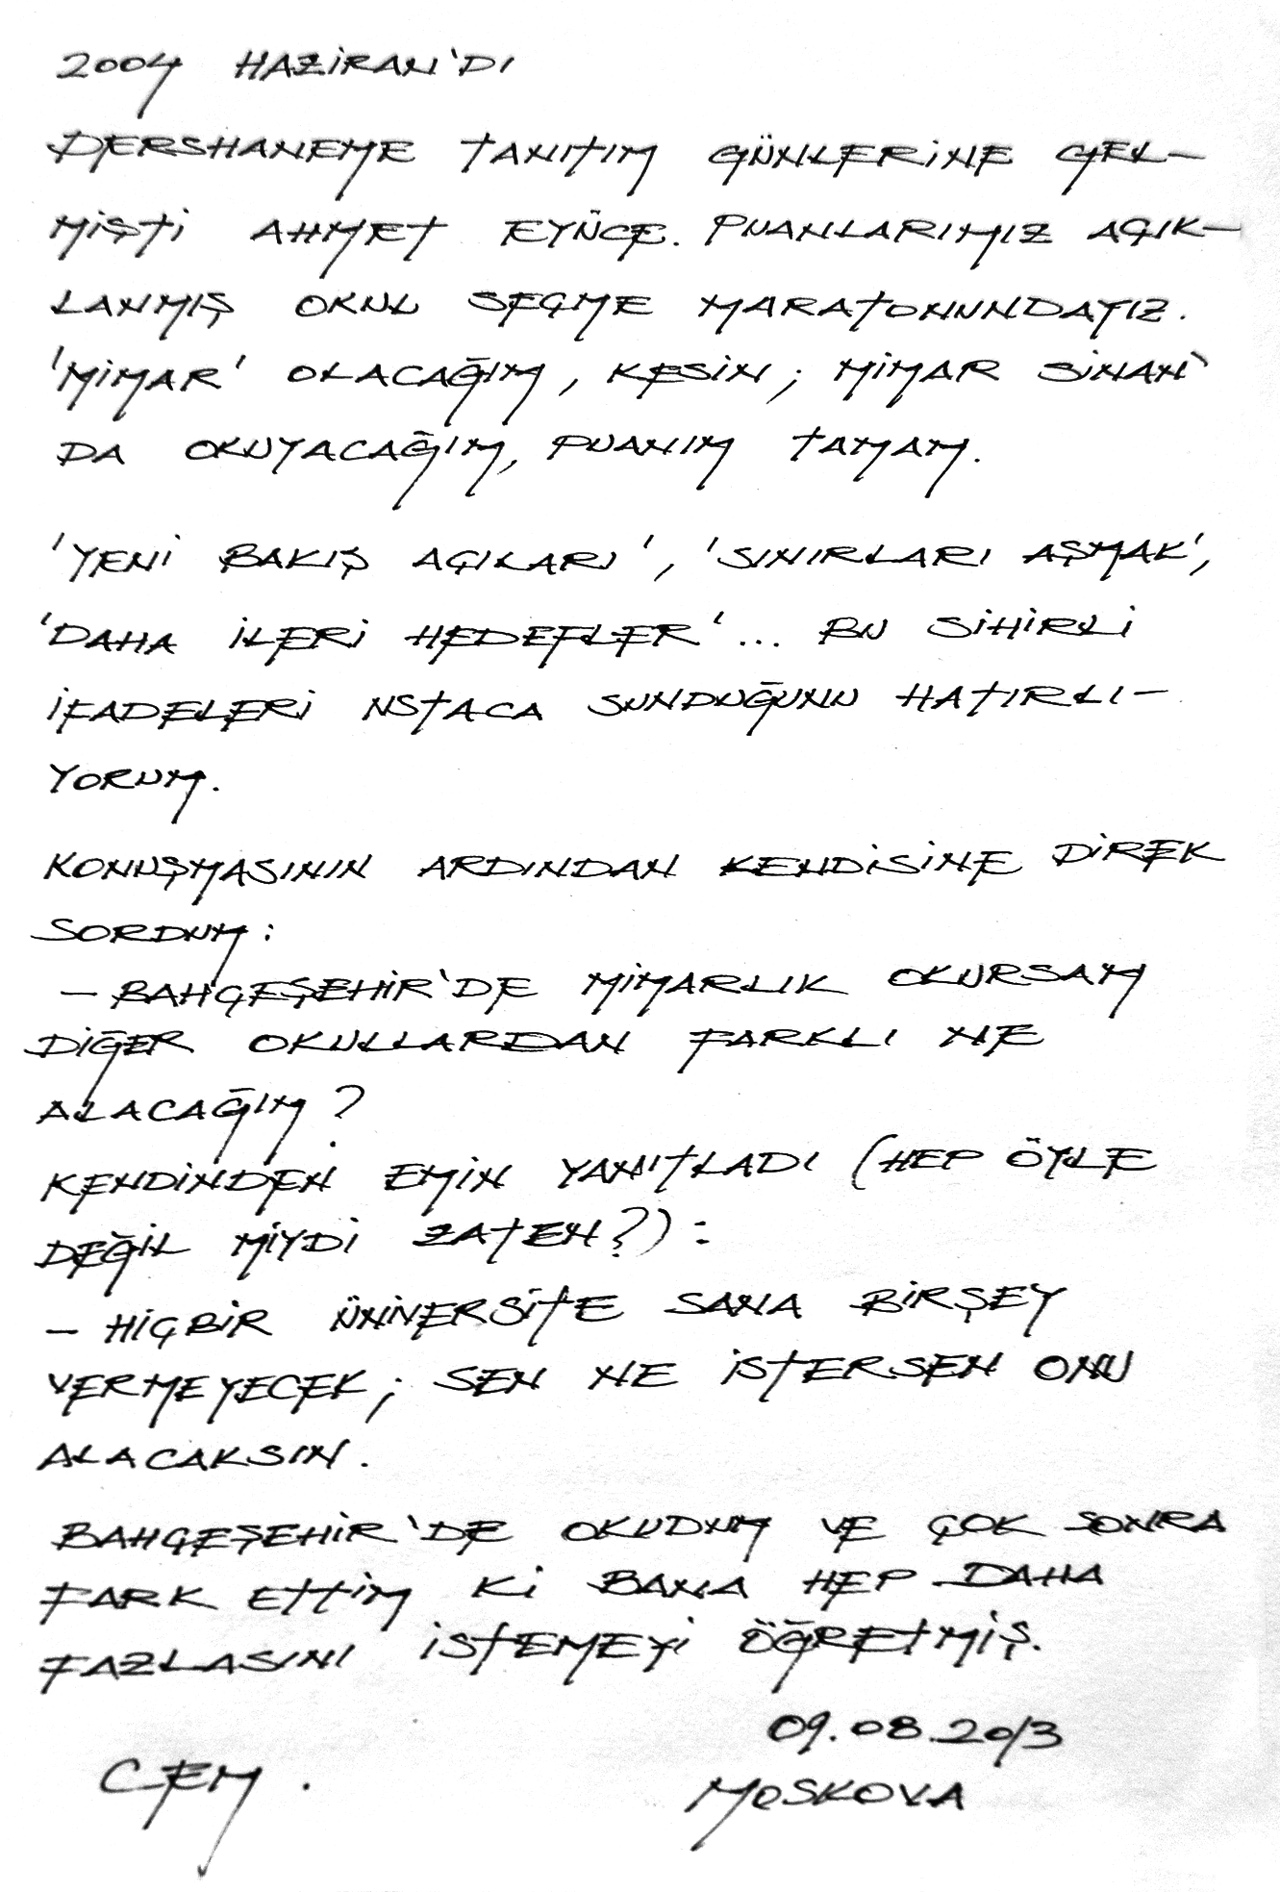 2004 HAZİRAN'DI
DERSHANEME TANITIM GÜNLERİNE GEL-
MİŞTİ AHMET EYÜCE. PUANLARIMIZ AÇIK-
LANMIŞ OKUL SEÇME MARATONUNDAYIZ.
'MİMAR' OLACAĞIM, KESİN; MİMAR SİNAN'
DA OKUYACAĞIM, PUANIM TAMAM.
'YENİ BAKIŞ AÇILARI', 'SINIRLARI AŞMAK',
'DAHA İLERİ HEDEFLER'... BU SİHİRLİ
İFADELERİ USTACA SUNDUĞUNU HATIRLI-
YORUM.
KONUŞMASININ ARDINDAN KENDİSİNE DİREK
SORDUM:
- BAHÇEŞEHİR'DE MİMARLIK OKURSAM
DİĞER OKULLARDAN FARKLI NE
ALACAĞIM?
KENDİNDEN EMİN YANITLADI (HEP ÖYLE
DEĞİL MİYDİ ZATEN?):
- HİÇBİR ÜNİVERSİTE SANA BİRŞEY
VERMEYECEK; SEN NE İSTERSEN ONU
ALACAKSIN.
BAHÇEŞEHİR'DE OKUDUM VE ÇOK SONRA
FARK ETTİM Kİ BANA HEP DAHA
FAZLASINI İSTEMEYİ ÖĞRETMİŞ.
09.08.2013
CEM. MOSKOVA